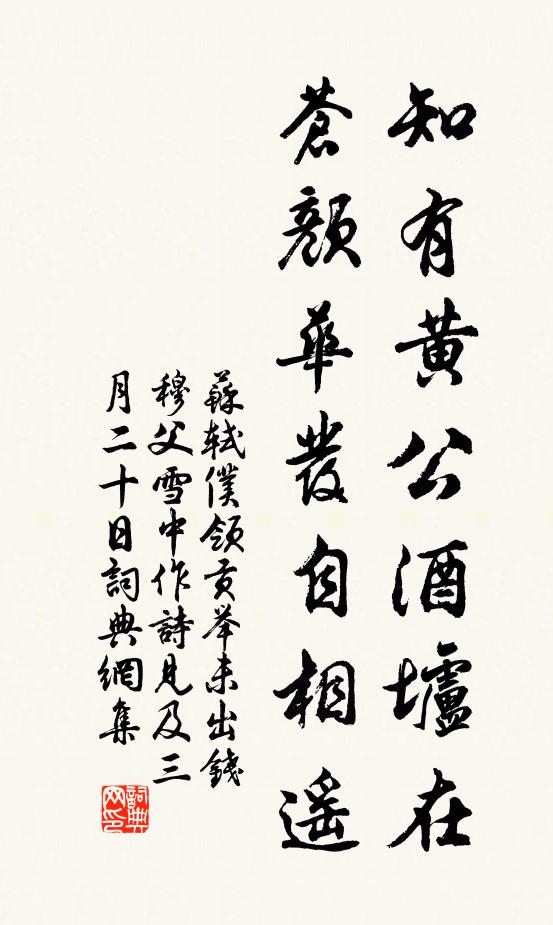 知有黄公酒壚在
蒼顏華發自相遥
蘇軾僕領貢举未出錢
穆父雪中作詩見及三
月二十日詞典網集
詞典网印